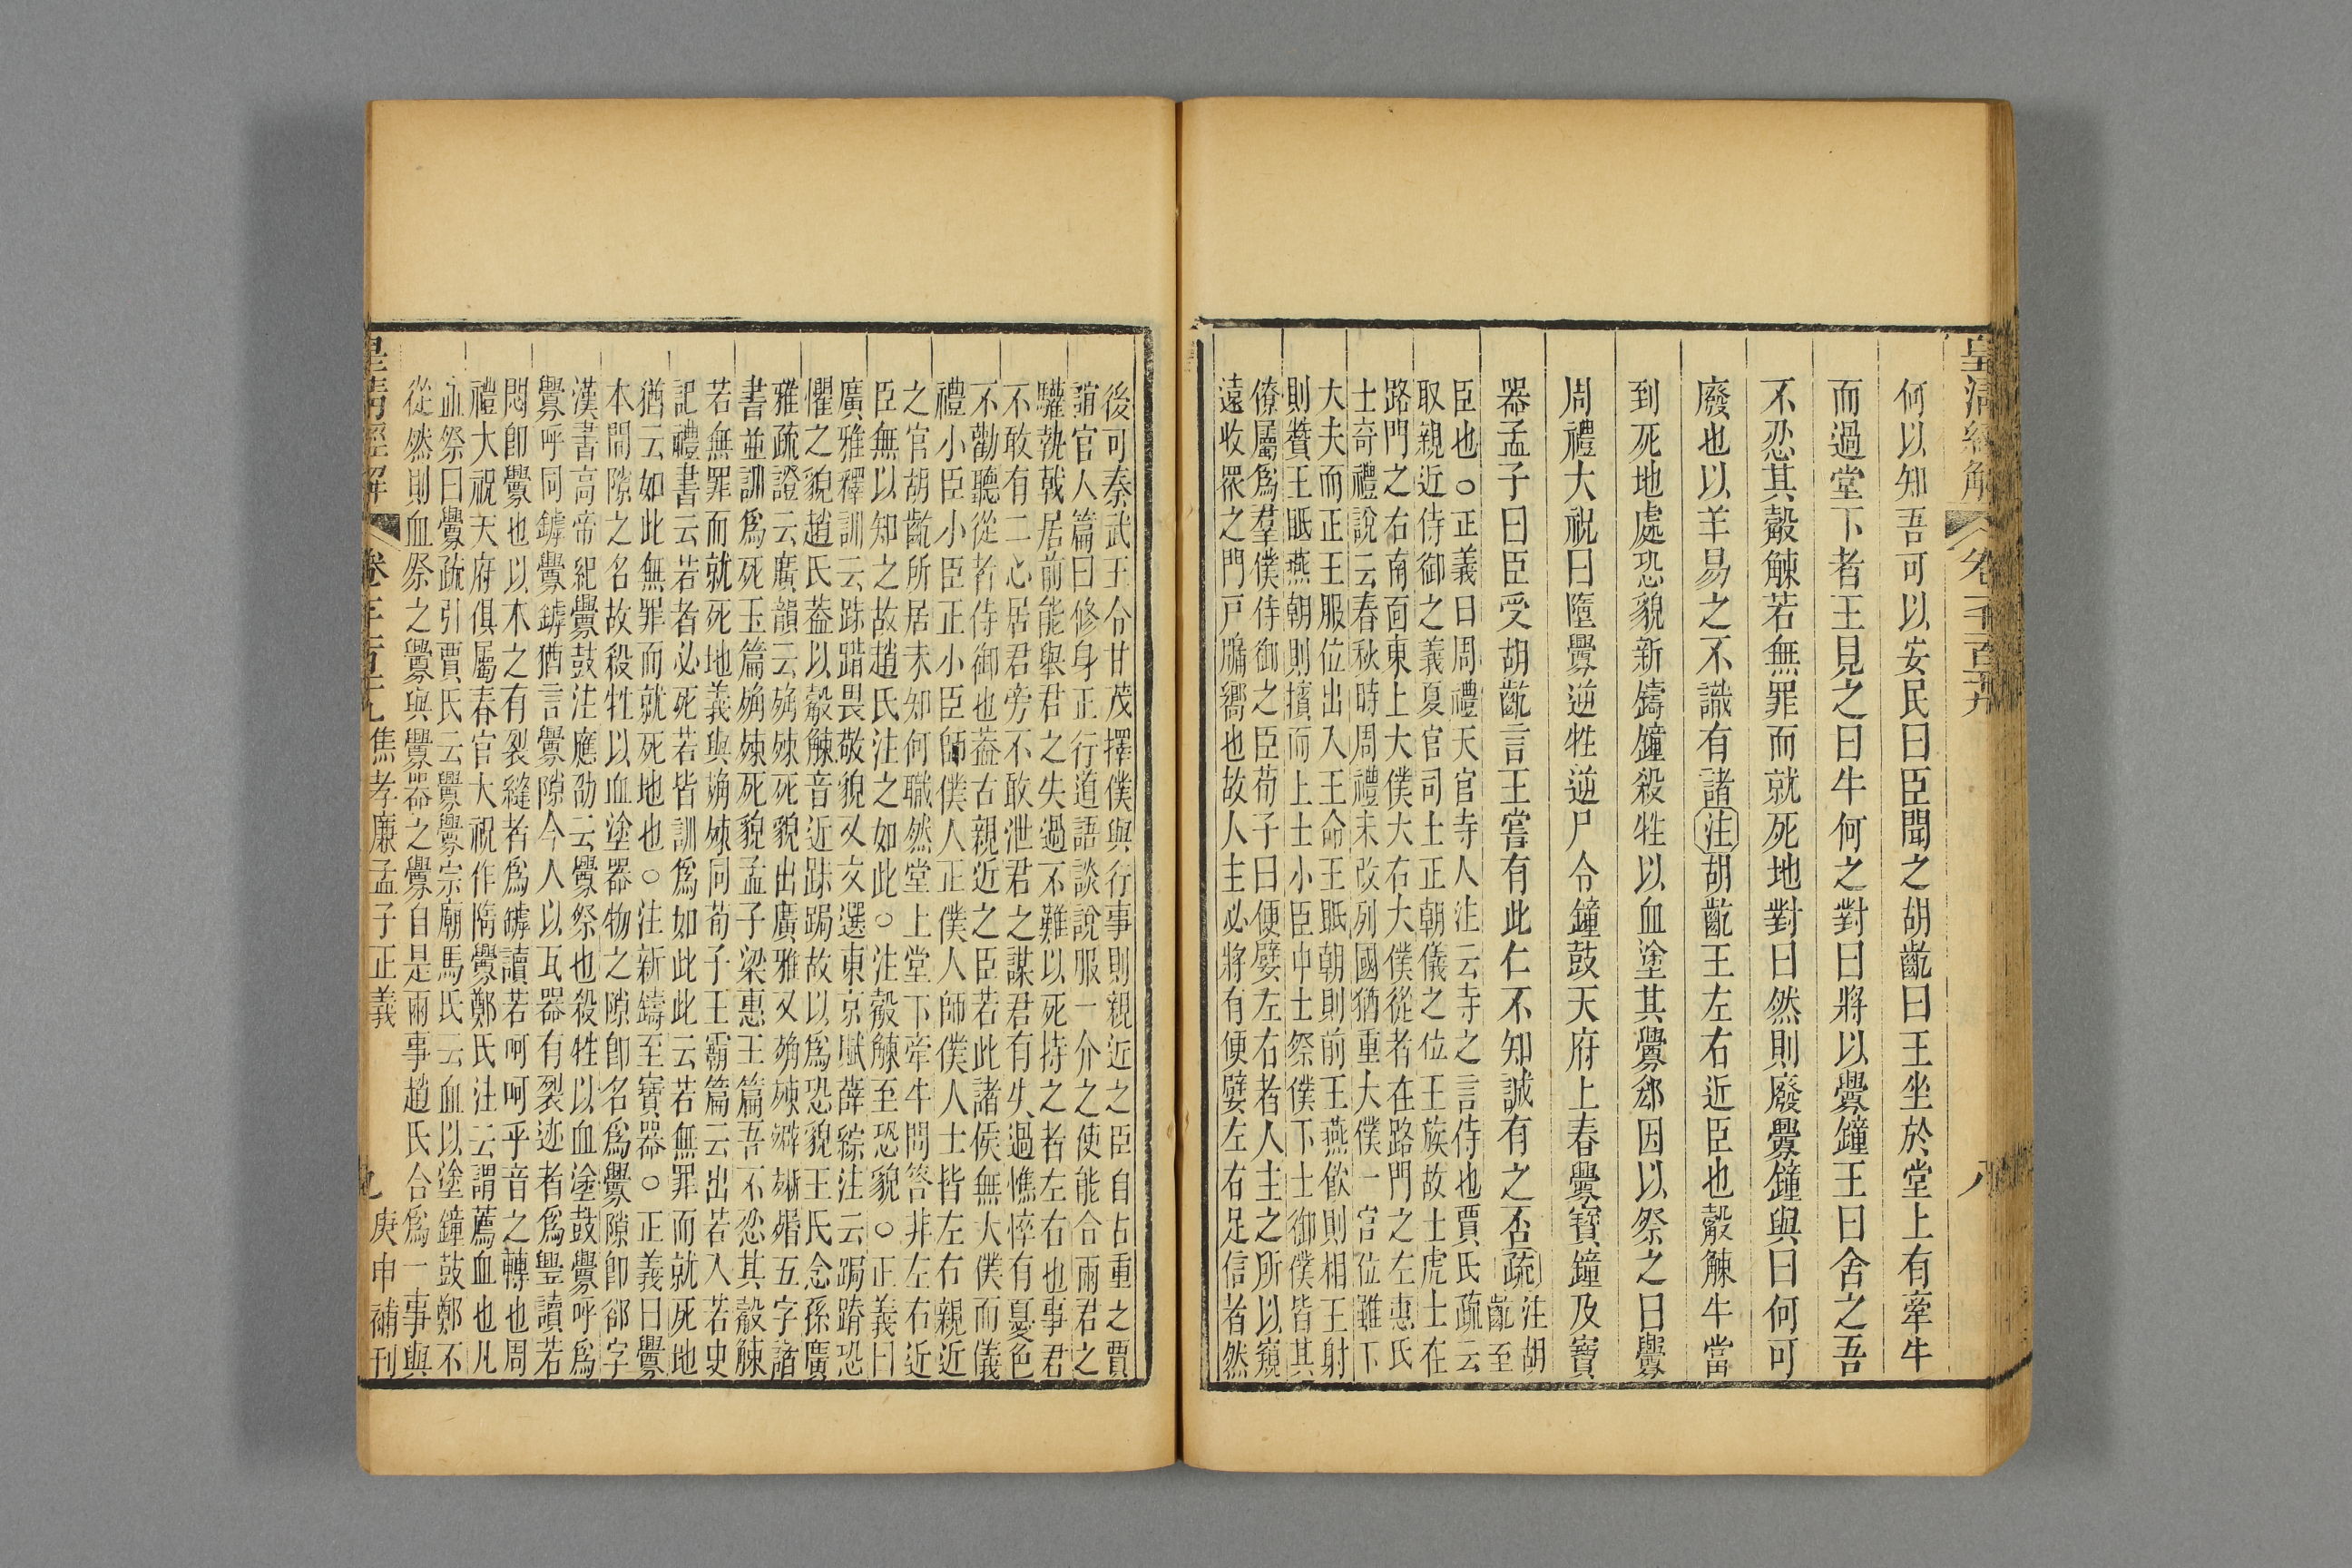 何以知吾可以安民曰臣聞之胡齕曰王坐於堂上有牽牛
而過堂下者王見之曰牛何之對曰將以釁鐘王曰舍之吾
不忍其觳觫若無罪而就死地對曰然則廢釁鐘與曰何可
廢也以羊易之不識有諸注胡齕王左右近臣也觳觫牛當
到死地處恐貌新鑄鐘殺牲以血塗其釁郄因以祭之曰釁
周禮大祝曰墮釁逆牲逆尸令鐘鼓天府上春釁寶鐘及寶
器孟子曰臣受胡齕言王嘗有此仁不知誠有之否疏注胡
齕至
臣也○正義曰周禮天官寺人注云寺之言侍也賈氏疏云
取親近侍御之義夏官司士正朝儀之位王族故士虎士在
路門之右南面東上大僕大右大僕從者在路門之左惠氏
士奇禮說云春秋時周禮未改列國猶重大僕一官位雖下
大夫而正王服位出入王命王眡朝則前王燕飲則相王射
則贊王眡燕朝則擯而上士小臣中士祭僕下士御僕皆其
僚屬爲羣僕侍御之臣荀子曰便嬖左右者人主之所以窺
遠收眾之門戸牖嚮也故人主必將有便嬖左右足信者然
後可秦武王令甘茂擇僕與行事則親近之臣自古重之賈
誼官人篇曰修身正行道語談說服一介之使能合兩君之
驩執戟居前能舉君之失過不難以死持之者左右也事君
不敢有二心居君旁不敢泄君之謀君有失過憔悴有憂色
不勸聽從者侍御也葢古親近之臣若此諸侯無大僕而儀
禮小臣小臣正小臣師僕人正僕人師僕人士皆左右親近
之官胡齕所居未知何職然堂上堂下牽牛問答非左右近
臣無以知之故趙氏注之如此○注觳觫至恐貌○正義曰
廣雅釋訓云踧踖畏敬貌又文選東京賦薛綜注云跼蹐恐
懼之貌趙氏葢以觳觫音近踧跼故以爲恐貌王氏念孫廣
雅疏證云廣韻云殏殐死貌出廣雅又殏殐殩殧殙五字諸
書並訓爲死玉篇殏殐死貌孟子梁惠王篇吾不忍其觳觫
若無罪而就死地義與殏殐同荀子王霸篇云出若入若史
記禮書云若者必死若皆訓爲如此此云若無罪而就死地
猶云如此無罪而就死地也○注新鑄至寶器○正義曰釁
本間隙之名故殺牲以血塗器物之隙卽名爲釁隙卽郤字
漢書高帝紀釁鼓注應劭云釁祭也殺牲以血塗鼓釁呼爲
釁呼同罅釁罅猶言釁隙今人以瓦器有裂迹者爲璺讀若
悶卽釁也以木之有裂縫者爲罅讀若呵呵乎音之轉也周
禮大祝天府俱屬春官大祝作隋釁鄭氏注云謂薦血也凡
血祭曰釁疏引賈氏云釁釁宗廟馬氏云血以塗鐘鼓鄭不
從然則血祭之釁與釁器之釁自是兩事趙氏合爲一事與
皇清經解 卷一千一百十九 焦孝廉孟子正義 九 庚申補刊